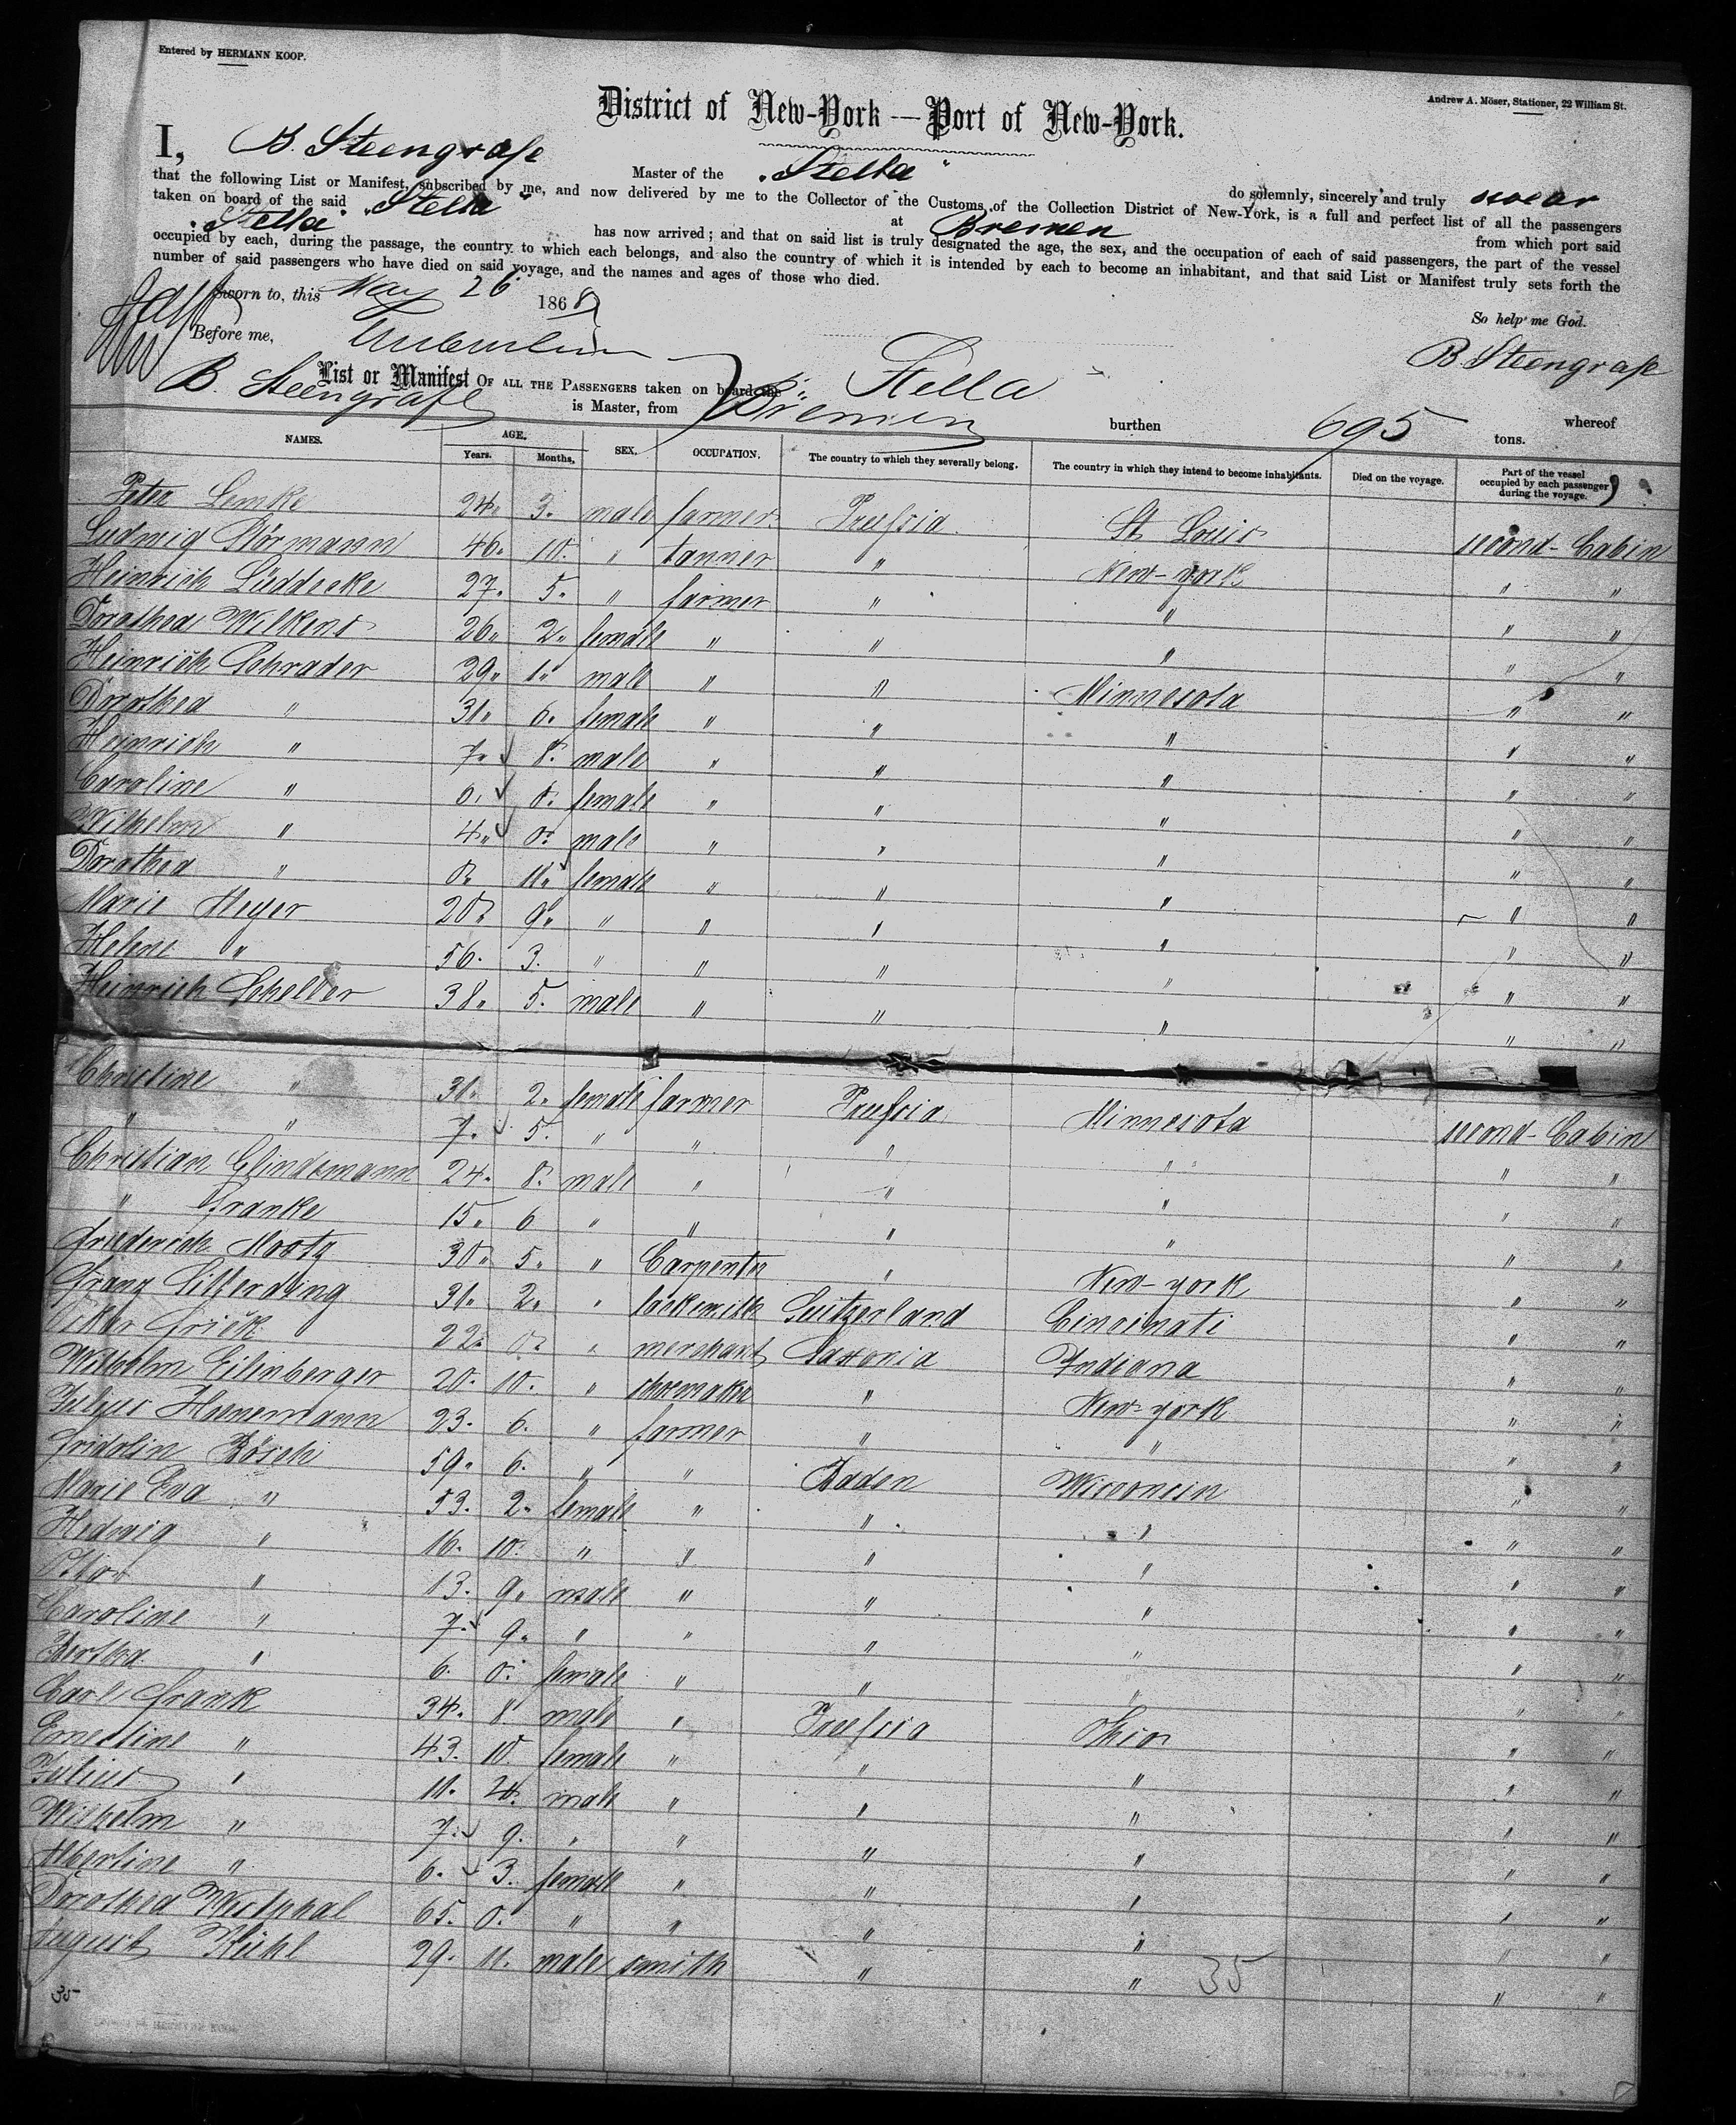 Entered by HERMANN KOOP.
Andrew A. Möser, Stationer, 22 William St.
District of New-York — Port of New-York.
I, B. Steengrafe Master of the "Stella" do solemnly, sincerely and truly swear
that the following List or Manifest, subscribed by me, and now delivered by me to the Collector of the Customs of the Collection District of New-York, is a full and perfect list of all the passengers
taken on board of the said "Stella" at Bremen from which port said
"Stella" has now arrived; and that on said list is truly designated the age, the sex, and the occupation of each of said passengers, the part of the vessel
occupied by each, during the passage, the country to which each belongs, and also the country of which it is intended by each to become an inhabitant, and that said List or Manifest truly sets forth the
number of said passengers who have died on said voyage, and the names and ages of those who died.
Sworn to, this May 26 1868
So help me God.
Before me,
B Steengrafe
List or Manifest OF ALL THE PASSENGERS taken on board the Stella whereof
B. Steengrafe is Master, from Bremen burthen 695 tons.
NAMES. AGE. Years. Months. SEX. OCCUPATION. The country to which they severally belong. The country in which they intend to become inhabitants. Died on the voyage. Part of the vessel occupied by each passenger during the voyage.
Peter Lemke 24. 3. male farmer Preussia St Louis second-Cabin
Ludwig Störmann 46. 10. " tanner " New-york " "
Heinrich Lüddecke 27. 5. " farmer " " " "
Dorothea Wilkens 26. 2. female " " " " "
Heinrich Schrader 29. 1. male " " Minnesota " "
Dorothea " 31. 6. female " " " " "
Heinrich " 7. 8. male " " " " "
Caroline " 6. 8. female " " " " "
Wilhelm " 4. 0. male " " " " "
Dorothea " 0. 11. female " " " " "
Marie Heyer 20. 9. " " " " " "
Helene " 56. 3. " " " " " "
Heinrich Schelder 38. 5. male " " " " "
Christine " 31. 2. female farmer Preussia Minnesota second-Cabin
" " 7. 5. " " " " " "
Christian Glindemann 24. 8. male " " " " "
" Franke 15. 6 " " " " " "
Friederich Mooty 30. 5. " Carpenter " New-york " "
Franz Litterding 31. 2. " locksmith Suitzerland Cincinati " "
Oskar Frick 22. 0. " merchant Saxonia Indiana " "
Wilhelm Eilenberger 20. 10. " shoemaker " New-york " "
Julius Hannemann 23. 6. " farmer " " " "
Fridolin Bösch 59. 6. " " Baden Wisconsin " "
Marie Eva " 53. 2. female " " " " "
Hedwig " 16. 10. " " " " " "
Otto " 13. 9. male " " " " "
Caroline " 7. 9. " " " " " "
Bertha " 6. 0. female " " " " "
Carl Frank 34. 8. male " Preussia Ohio " "
Ernestine " 43. 10. female " " " " "
Julius " 11. male " " " " "
Wilhelm " 7. 9. " " " " " "
Albertine " 6. 3. female " " " " "
Dorothea Westphal 65. 0. " " " " " "
August Kühl 29. 11. male smith " " " "
35
35